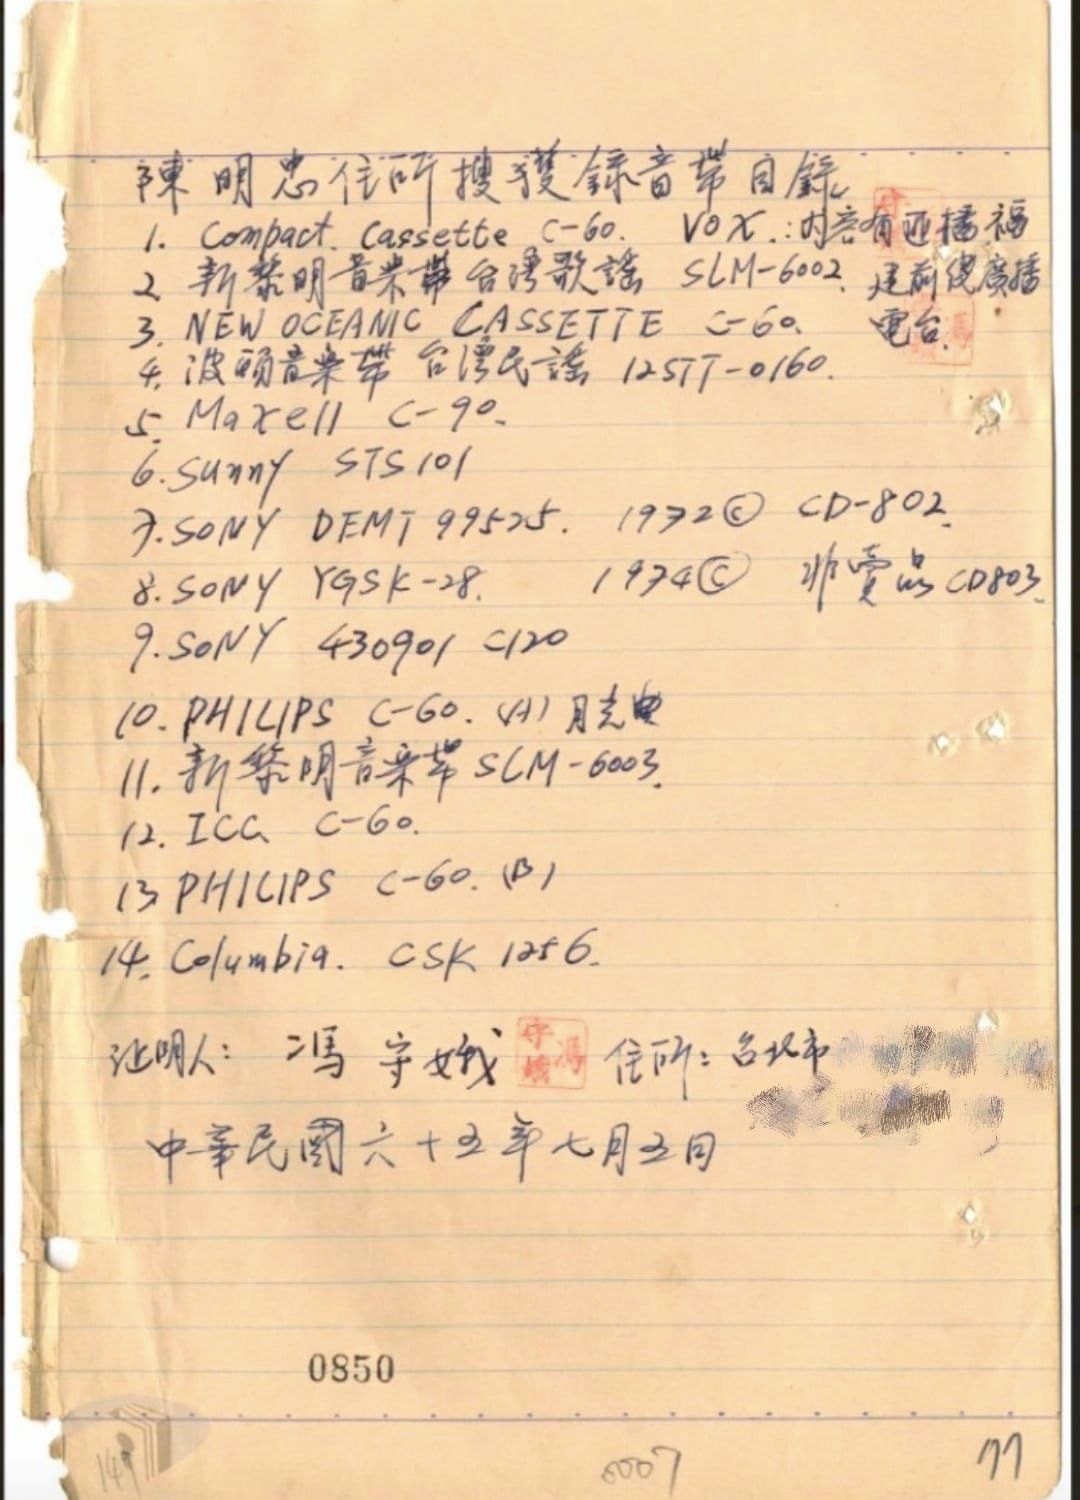 陳明忠住所搜獲錄音帶目錄
1. Compact. Cassette C-60. VOX.:內容有匪播福
2. 新黎明音樂帶台灣歌謠 SLM-6002. 建前線廣播
3. NEW OCEANIC CASSETTE C-60. 電台.
4. 波頭音樂帶 台灣民謠 12STT-0160.
5. Maxell C-90.
6. Sunny STS101
7. SONY DEMT 99525. 1972© CD-802.
8. SONY YGSK-28. 1974© 非賣品 CD803.
9. SONY 430901 C120
10. PHILIPS C-60. (A) 月光曲
11. 新黎明音樂帶 SLM-6003.
12. ICC C-60.
13. PHILIPS C-60. (B)
14. Columbia. CSK 1256.
证明人: 馮守娥 守娥馮 住所: 台北市
中華民國六十五年七月五日
0850
149 0007 77